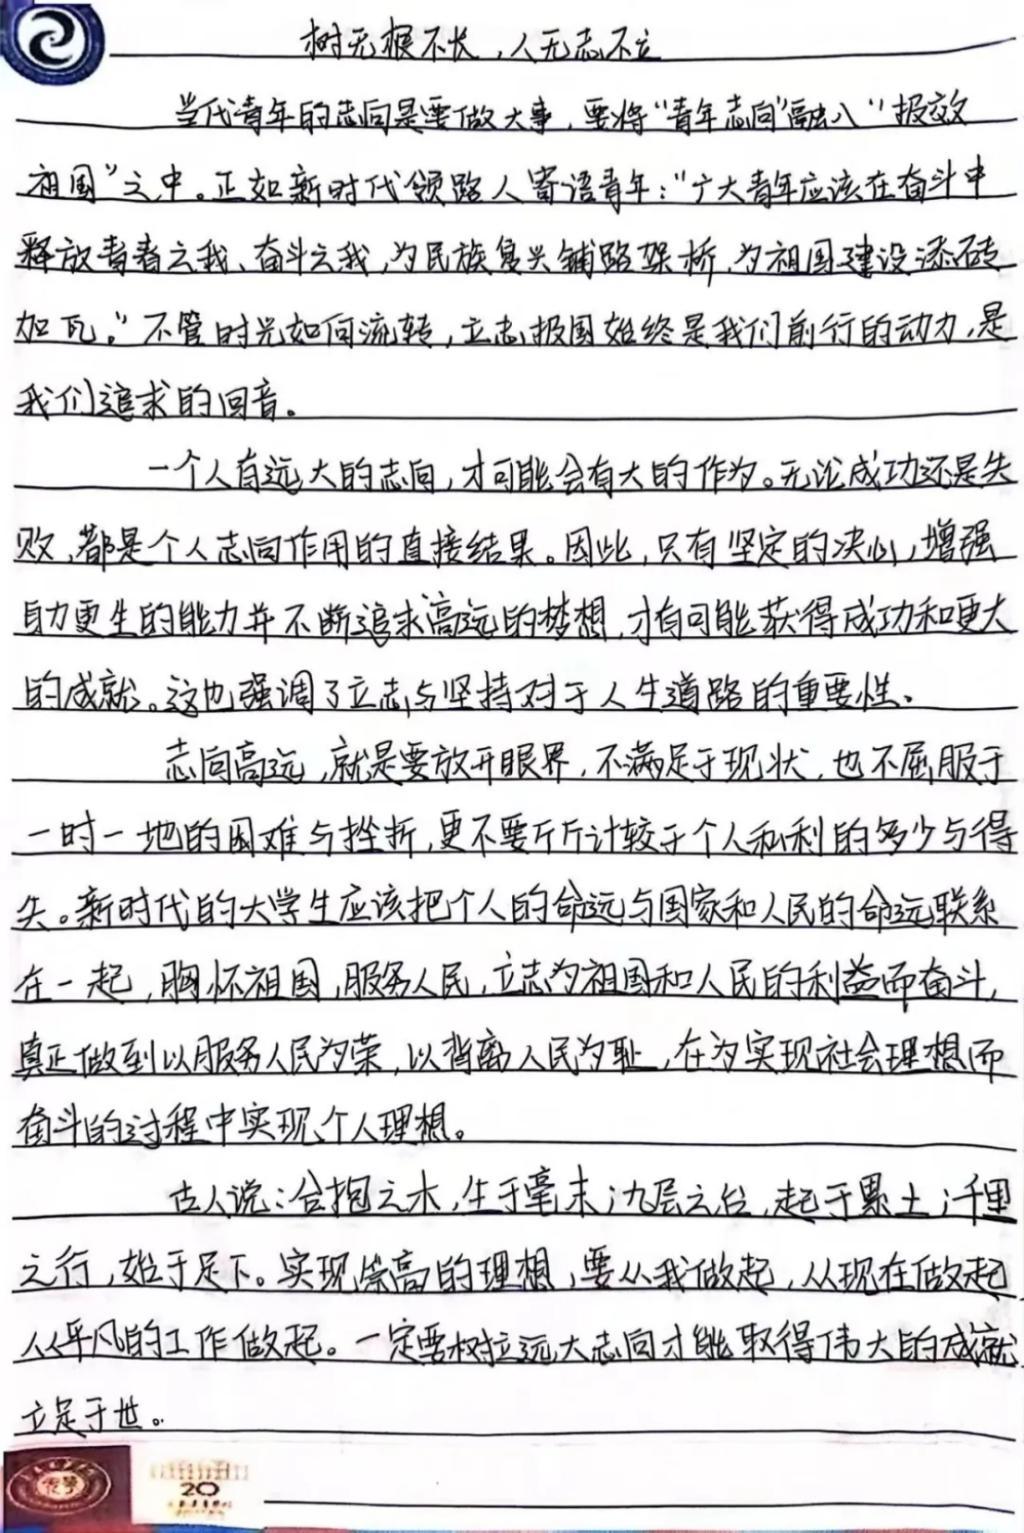 树无根不长，人无志不立
当代青年的志向是要做大事，要将“青年志向”融入“报效
祖国”之中。正如新时代领路人寄语青年：“广大青年应该在奋斗中
释放青春之我、奋斗之我，为民族复兴铺路架桥，为祖国建设添砖
加瓦。”不管时光如何流转，立志报国始终是我们前行的动力，是
我们追求的回音。
一个人有远大的志向，才可能会有大的作为。无论成功还是失
败，都是个人志向作用的直接结果。因此，只有坚定的决心，增强
自力更生的能力并不断追求高远的梦想，才有可能获得成功和更大
的成就。这也强调了立志与坚持对于人生道路的重要性。
志向高远，就是要放开眼界，不满足于现状，也不屈服于
一时一地的困难与挫折，更不要斤斤计较于个人私利的多少与得
失。新时代的大学生应该把个人的命运与国家和人民的命运联系
在一起，胸怀祖国，服务人民，立志为祖国和人民的利益而奋斗，
真正做到以服务人民为荣，以背离人民为耻，在为实现社会理想而
奋斗的过程中实现个人理想。
古人说：合抱之木，生于毫末；九层之台，起于累土；千里
之行，始于足下。实现崇高的理想，要从我做起，从现在做起
从平凡的工作做起。一定要树立远大志向才能取得伟大的成就
立足于世。
20